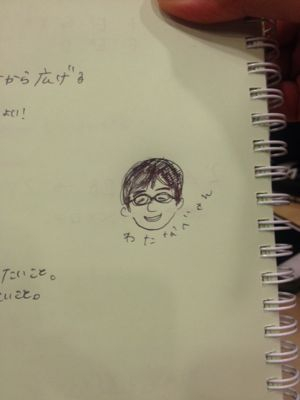 から広げる
よい!
わたなべさん
たいこと。
たいこと。